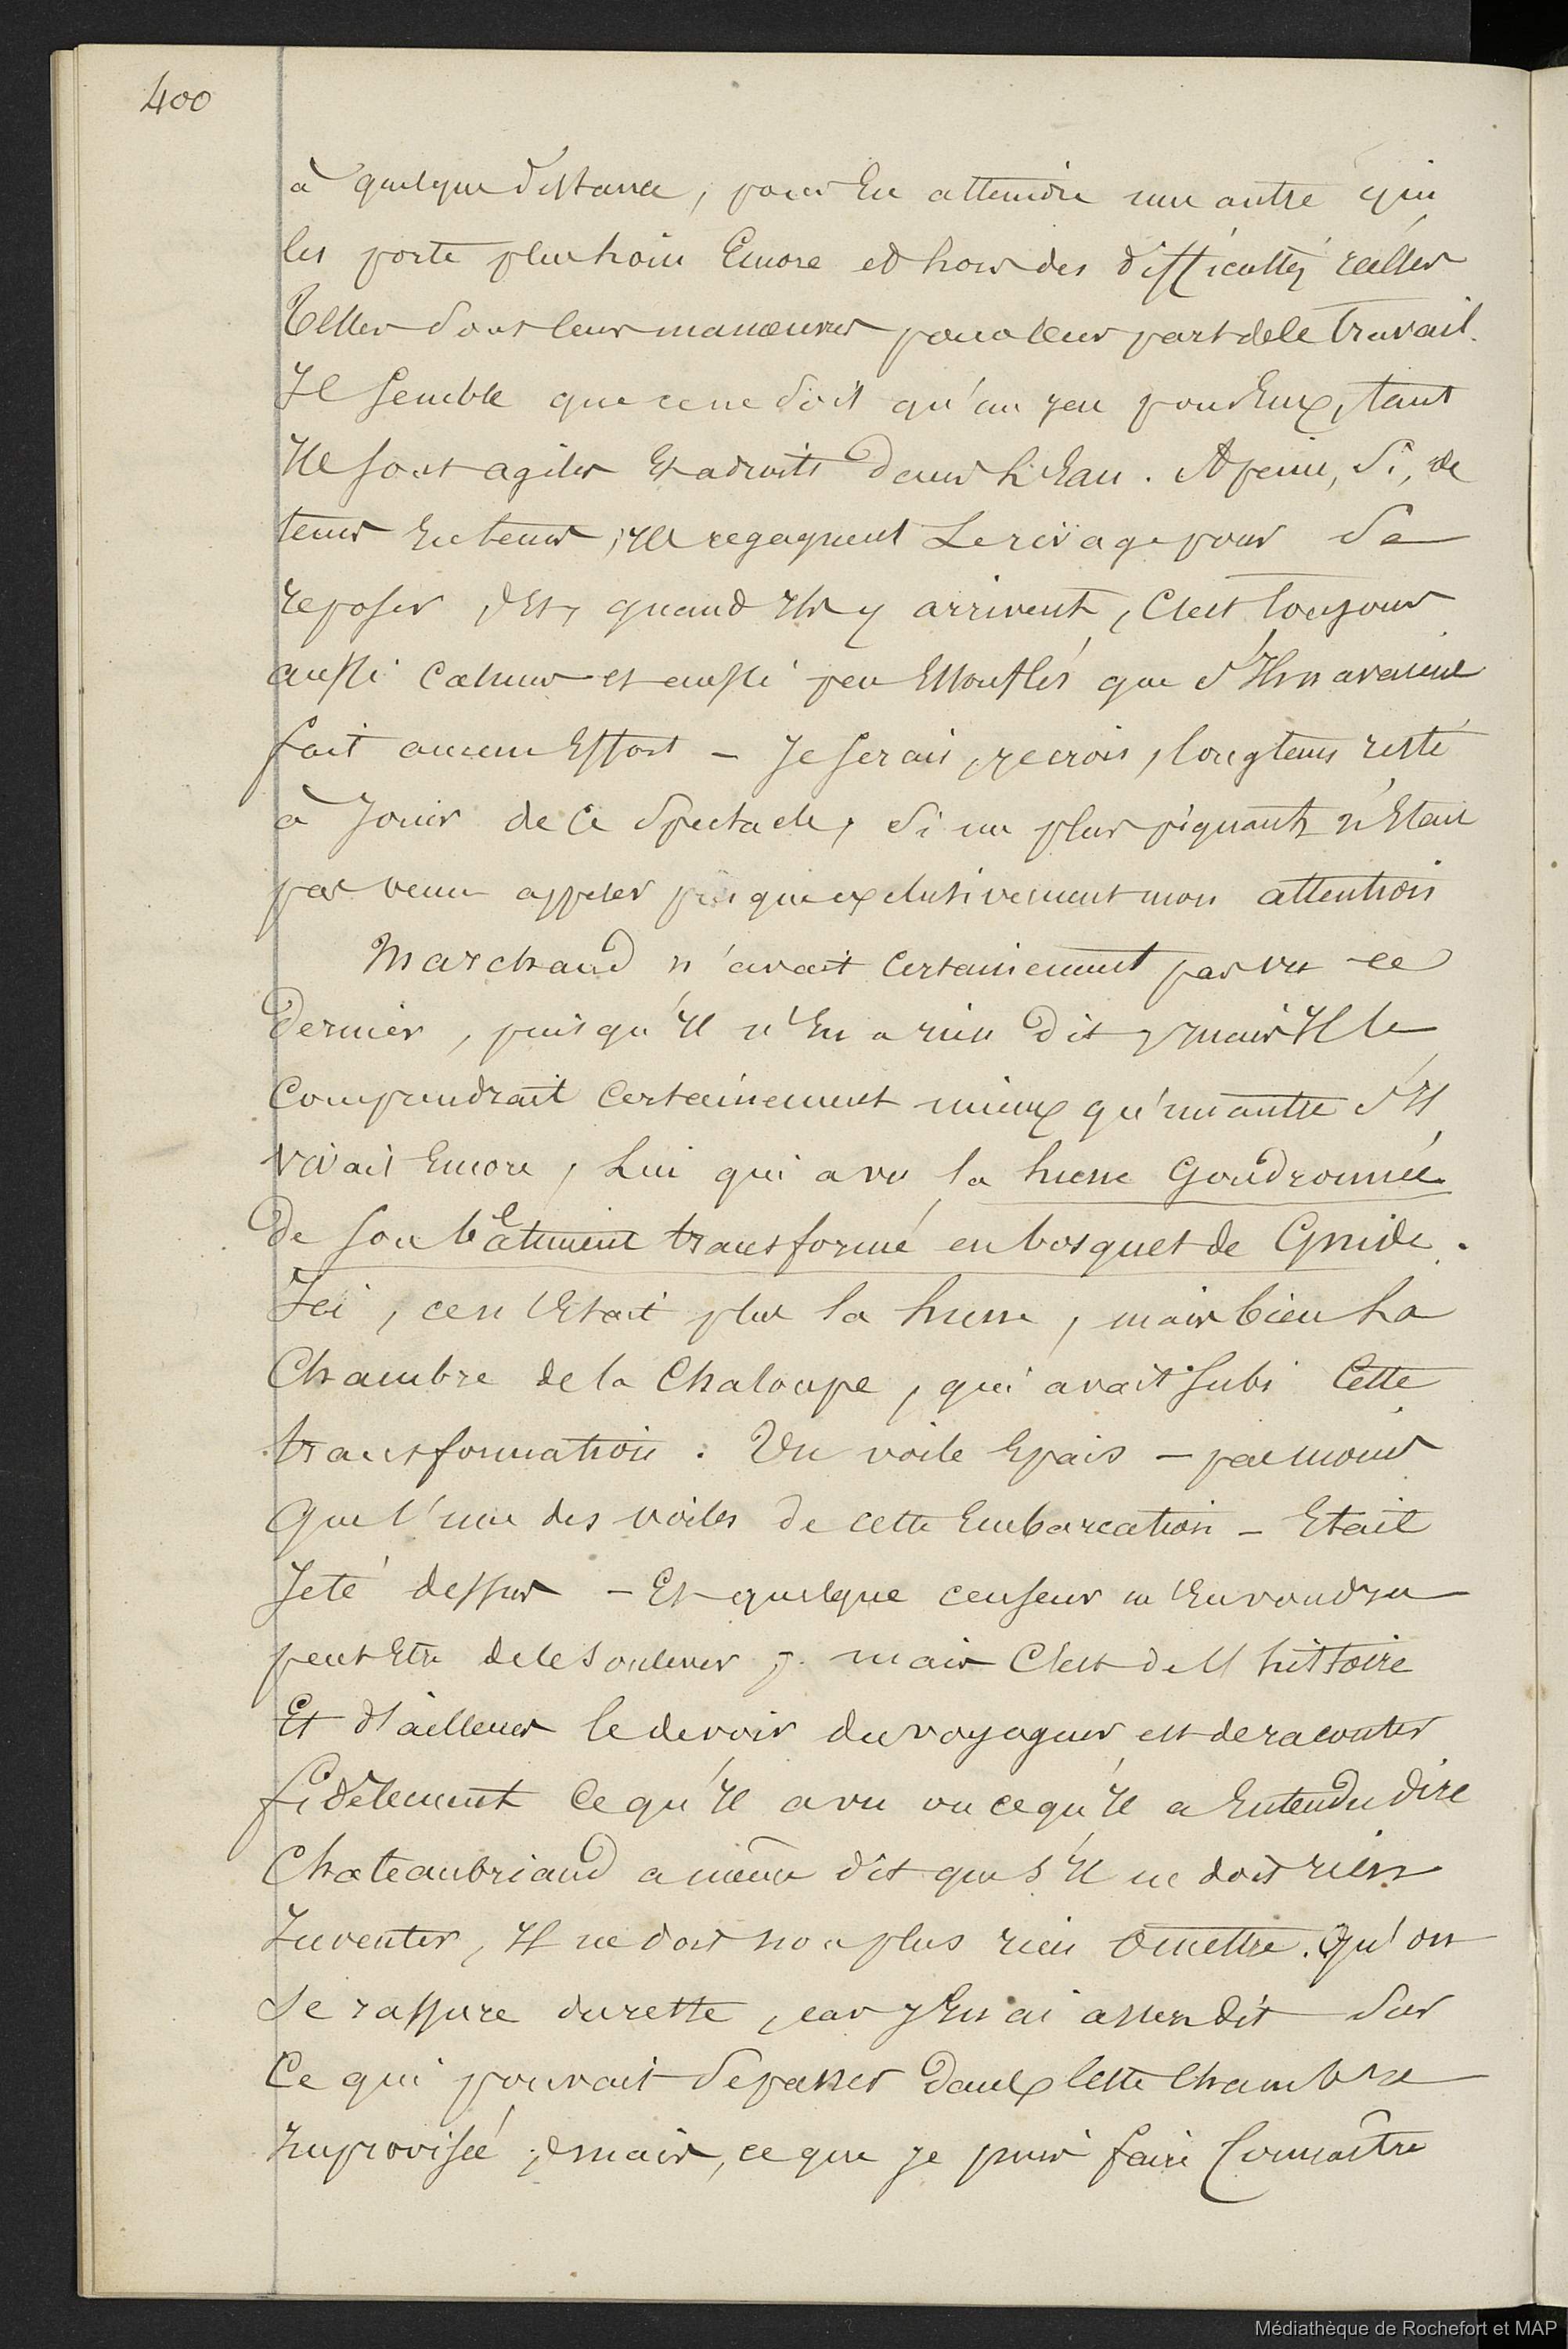 400
à quelque distance, pour En attendre une autre qui
les porte plus Loin Encore et hors des difficultés réelles
Telles sont leurs manœuvres pour leur part de le travail.
Il semble que ce ne soit qu'un jeu pour Eux, tant
Ils sont agiles Et adroits dans L'Eau. A peine, si, de
tems En tems, ils regagnent Le rivage pour se
reposer, Et, quand ils y arrivent, C'est toujours
aussi calmes et aussi peu Essouflés que s'Ils n'avaient
fait aucun Effort – Je serais, je crois, longtems resté
à Jouir de ce Spectacle, si un plus piquant n'Etait
pas venu appeler presque exclusivement mon attention
Marchand n'avait certainement pas vu ce
dernier, puisqu'Il n'En a rien dit, mais Il le
comprendrait certainement mieux qu'un autre s'Il
vivait Encore, Lui qui a vu la hune Goudronnée
De son bâtiment transformé en bosquet de Gnide.
Ici, ce n'Etait plus la hune, mais bien La
Chambre de la Chaloupe, qui avait subi Cette
transformation. Un voile Epais – pas moins
que l'une des voiles de cette Embarcation – Etait
Jeté dessus – Et quelque censeur m'En voudra
peut Etre de le soulever, mais C'est de l'histoire
Et d'ailleurs le devoir du voyageur est de raconter
fidèlement Ce qu'Il a vu ou ce qu'Il a Entendu dire
Chateaubriand a même dit que s'Il ne doit rien
Inventer, Il ne doit non plus rien Omettre. Qu'on
se rassure du reste, car j'En ai assez dit sur
Ce qui pouvait se passer dans Cette Chambre
Improvisée ; mais, ce que je puis faire Connaître
Médiathèque de Rochefort et MAP